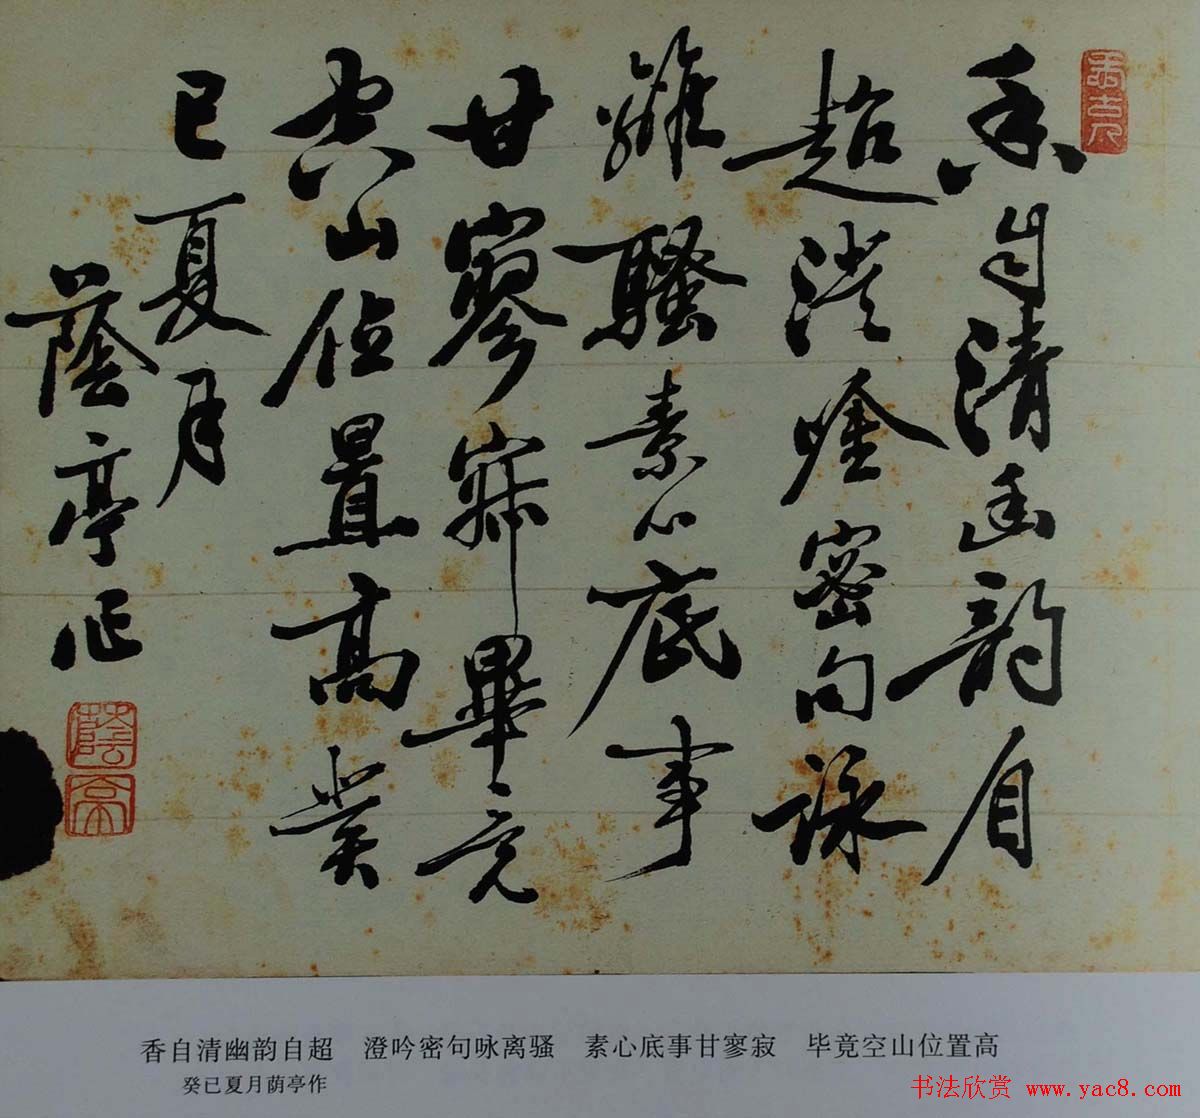 香自清幽韵自
超澄唫密句詠
離騷素心底事
甘寥寂畢竟
空山位置高癸
巳夏月
蔭亭作
蔭亭
香自清幽韵自超 澄吟密句咏离骚 素心底事甘寥寂 毕竟空山位置高
癸已夏月荫亭作
书法欣赏 www.yac8.com